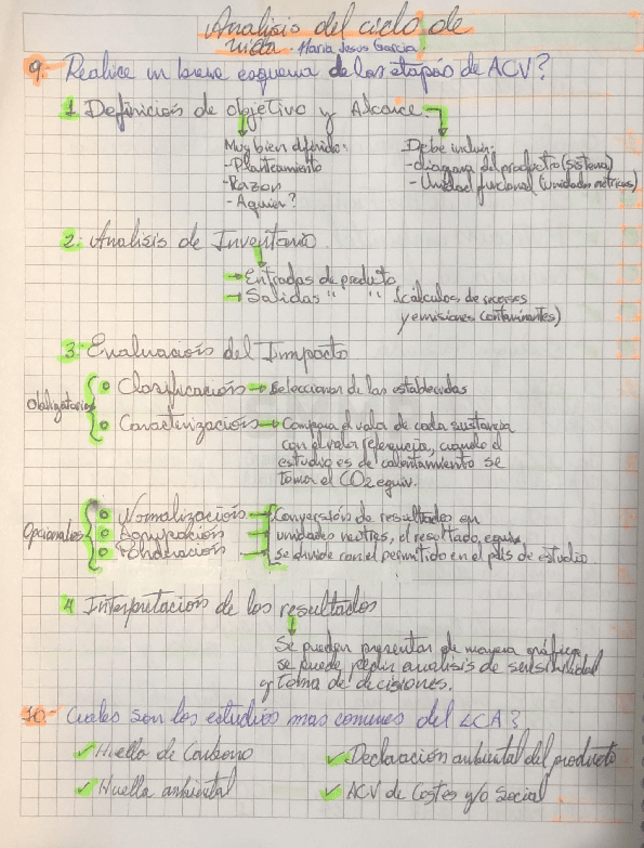 Analisis del ciclo de
vida. Maria Jesus Garcia.
9- Realice un breve esquema de las etapas de ACV?
1 Definición de objetivo y Alcance.
Muy bien difinido:
-Planteamiento
-Razon
-Aquien?
Debe incluir:
-diagrama del producto (sistema)
-Unidad funcional (unidades metricas)
2: Analisis de Inventario
→ Entradas de producto
→ Salidas " " (cálculos de
y emisiones contaminantes)
3: Evaluación del Impacto
Obligatorios
• Clasificación → Seleccionar de las establecidas
• Caracterización → Compara el valor de cada sustancia
con el valor referencia, cuando el
estudio es de calentamiento se
toma el CO2 equiv.
Opcionales
• Normalización → Conversión de resultados en
• Agrupación → unidades neutras, el resultado, equiv.
• Ponderación → se divide con el permitido en el país de estudio.
4 Interpretación de los resultados
Se pueden presentar de manera gráfica,
se puede pedir analisis de sensibilidad
y Toma de decisiones.
10- Cuales son los estudios mas comunes del LCA?
✓ Huella de Carbono
✓ Declaración ambiental del producto
✓ Huella ambiental
✓ ACV de Costes y/o Social